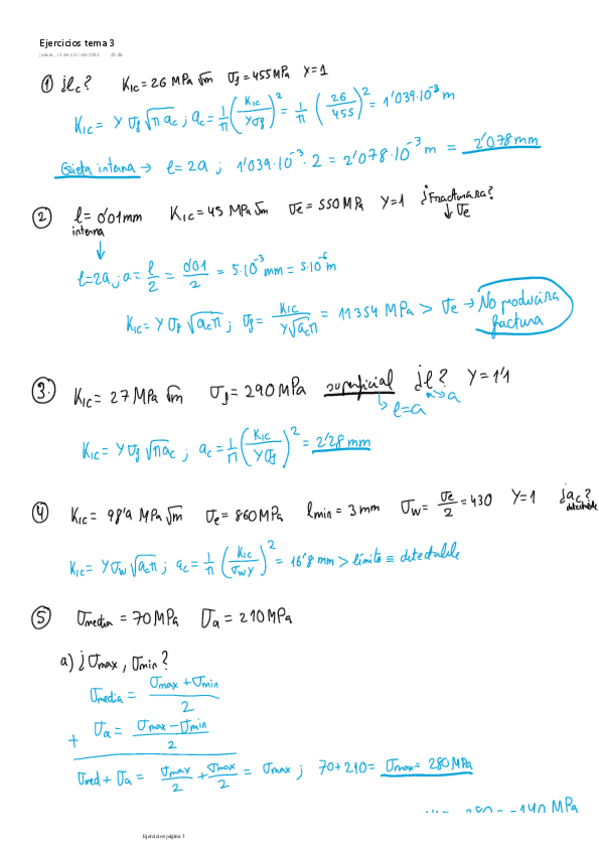 Ejercicios tema 3
① ¿lc? KIC = 26 MPa √m σf = 455 MPa Y = 1
KIC = Y σf √π ac ; ac = 1/π (KIC/Yσf)² = 1/π (26/455)² = 1'039·10⁻³ m
Grieta interna → l = 2a ; 1'039·10⁻³ · 2 = 2'078·10⁻³ m = 2'078 mm
② l = 0'01 mm KIC = 45 MPa √m σe = 550 MPa Y = 1 ¿Fracturara?
interna ↓ σe
l = 2a ; a = l/2 = 0'01/2 = 5·10⁻³ mm = 5·10⁻⁶ m
KIC = Y σf √ac π ; σf = KIC/Y√ac π = 11354 MPa > σe → No producira factura
③ KIC = 27 MPa √m σf = 290 MPa superficial ¿l? Y = 1'1
↳ l = a → a
KIC = Y σf √π ac ; ac = 1/π (KIC/Yσf)² = 2'28 mm
④ KIC = 98'9 MPa √m σe = 860 MPa lmin = 3 mm σw = σe/2 = 430 Y = 1 ¿ac?
detectable
KIC = Y σw √ac π ; ac = 1/π (KIC/σw Y)² = 16'8 mm > límite ≡ detectable
⑤ σmedia = 70 MPa σa = 210 MPa
a) ¿σmax, σmin?
σmedia = σmax + σmin / 2
+ σa = σmax − σmin / 2
σmed + σa = σmax/2 + σmax/2 = σmax ; 70 + 210 = σmax = 280 MPa
Ejercicios página 1